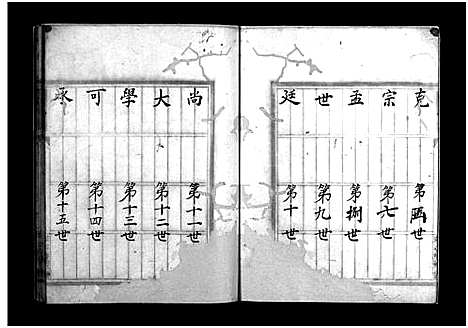 克 第五世
宗 第六世
孟 第捌世
世 第九世
廷 第十世
尚 第十一世
大 第十二世
學 第十三世
可 第十四世
承 第十五世